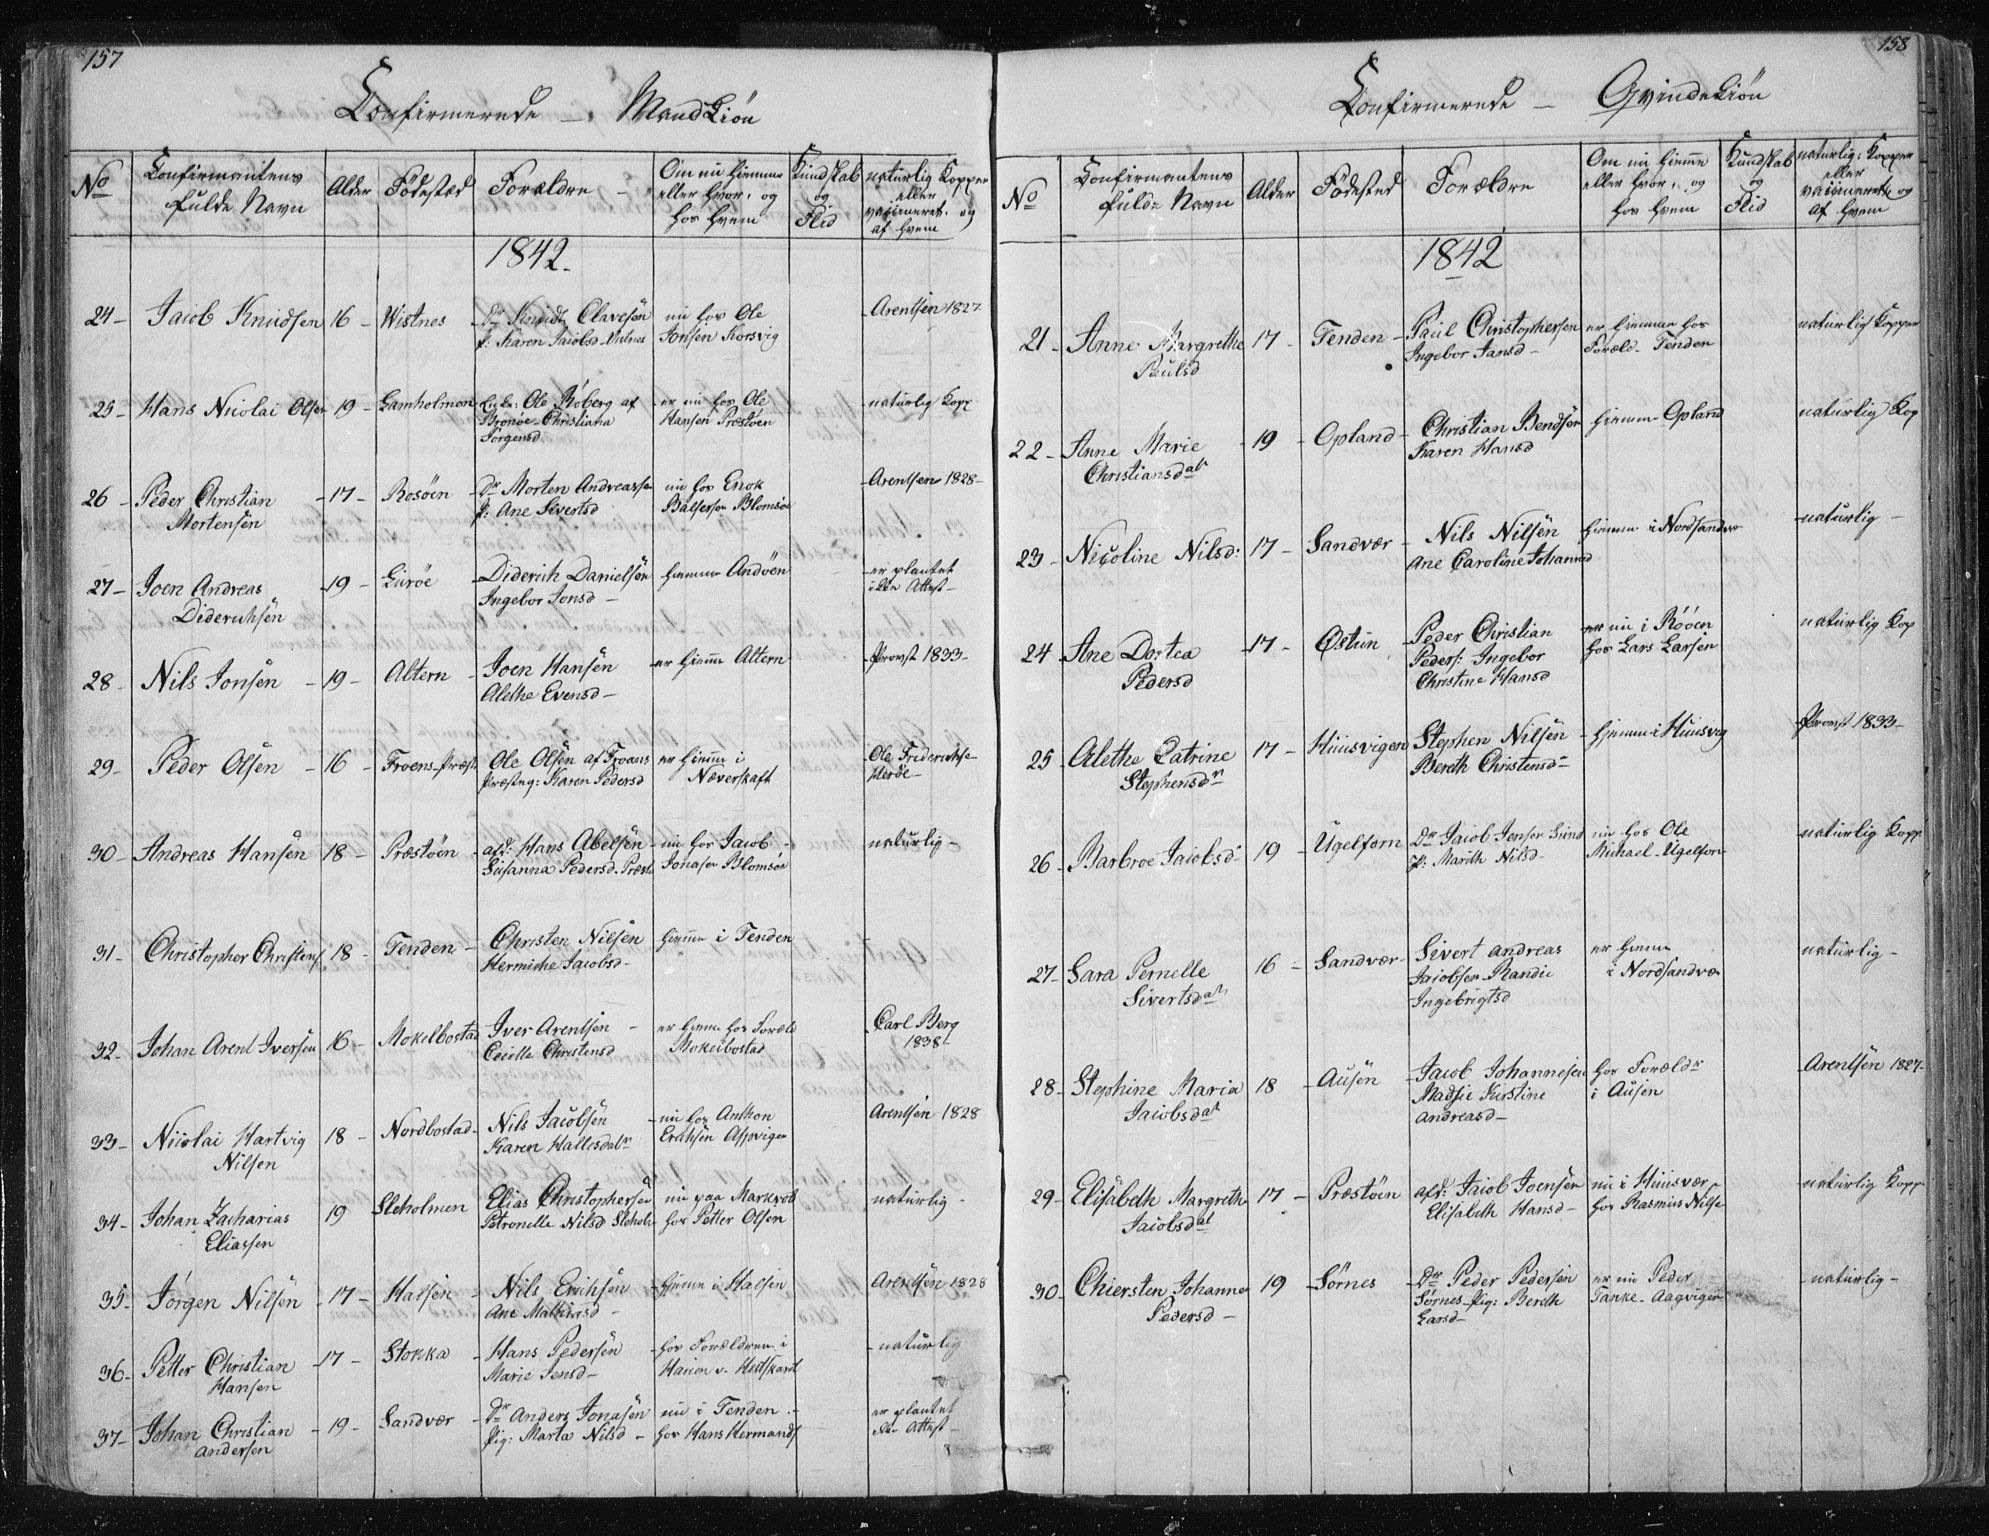 157
Confirmerede – Mandkiön
No
Confirmantens
fulde Navn
Alder
Födested
Forældre –
Om nu hiemme
eller hvor, og
hos hvem
Kundskab
og
Flid
naturlig Kopper
eller
vaccineret, og
af hvem
1842.
24 – Jacob Knudsen 16 – Wistnes
Knudt Olavesön
p: Karen Jacobsd
nu hos Ole
Jonsen Korsvig
Arentsen 1827
25 – Hans Nicolai Olsen 19 – Lamholmen
Ole Roberg af
Bronöe – Christiana
Jörgensd
er nu hos Ole
Hansen Præstöen
naturlig Kopp
26 – Peder Christian
Mortensen
– 17 – Rosöen
Dr Morten Andreassen
p: Ane Sivertsd
nu hos Enok
Baltsersen Blomsöe
Arentsen 1828 –
27 – Joen Andreas
Diderichsön
– 19 – Luröe
Diderich Danielsön
Ingebor Jonsd –
hiemme Andöen
er plantet
Attest –
28 – Nils Jonsön – 19 – Altern
Joen Hansön
Alethe Evensd –
er hiemme Altern
Provst 1833 –
29 – Peder Olsen – 16 – Froens Præst
Ole Olsen af Froens
Præsteg: Karen Pedersd
er hiemme i
Næverskaft
Ole Friderichse
Heröe –
30 – Andreas Hansen 18 – Præstöen
afd: Hans Abelsön
Susanna Pedersd Præst
nu hos Jacob
Jonasen Blomsöe
naturlig –
31 – Christopher Christens 18 – Tenden –
Christen Nilsen
Hermiche Jacobsd –
hiemme i Tenden
32 – Johan Arent Iversen 16 – Mokelbostad
Iver Arentsen –
Cecille Christensd
er hiemme hos Foræld
Mokelbostad
Carl Berg
1838 –
33 – Nicolai Hartvig
Nilsen
18 – Nordbostad –
Nils Jacobsen
Karen Hallesdatr
nu hos Anthon
Erichsen Aspvigen
Arentsen 1828
34 – Johan Zacharias
Eliassen
19 Sleholmen
Elias Christophersen
Petronelle Nilsd Slehol
nu paa Markvol
hos Petter Olsen
naturlig –
35 – Jörgen Nilsön – 17 – Halsen
– Nils Erichsen
Ane Mathiasd –
hiemme i Halsen
Arentsen 1828
36 – Petter Christian
Hansen
17 – Stokka
– Hans Pedersön
Marie Jensd –
hos Forældrene i
Hestskard
– naturlig
37 – Johan Christian
Andersen
– 19 – Sandvær
Dr Anders Jonasen
Pig: Marta Nilsd –
nu i Tenden –
hos Hans Hermands
er plantet
Attest –
158
Confirmerede – Qvindekiön
No
Confirmantens
fulde Navn
Alder
Födested
Forældre
Om nu hiemme
eller hvor, og
hos hvem
Kundskab
og
Flid
naturlig: Kopper
eller
vaccineret og
af hvem
1842
21 – Anne Margrethe
Paulsd
17 – Tenden –
Paul Christophersen
Ingebor Jansd –
er hiemme hos
Foræld – Tenden
naturlig Kopper
22 – Anne Marie
Christiansdatr
19 – Opland –
Christian Bendsen
Karen Hansd
hiemme Opland
naturlig Kop
23 – Nicoline Nilsd: 17 – Sandvær –
Nils Nilsön
Ane Caroline Johannsd
hiemme i Nordsandvær
naturlig –
24 – Ane Dortea
Pedersd
17 – Östun
Peder Christian
Peders: Ingebor
Christine Hansd
er nu i Röden
hos Lars Larsen
naturlig Kop
25 – Alethe Catrine
Stephensdr
17 – Huusvigen
Stephen Nilsön
Bereth Christensd –
hiemme i Huusvig
Provst 1833 –
26 – Barbroe Jacobsd 19 – Ugelforn
Dr Jacob Jensen Sund
p: Marith Nilsd –
nu hos Ole
Michael – Ugelforn
naturlig Kopp
27 – Sara Pernelle
Sivertsdat
16 – Sandvær –
Sivert Andreas
Jacobsen – Randie
Ingebrigtsd
er hiemme
i Nordsandvæ
naturlig –
28 – Stephine Maria
Jacobsdat
18 – Ausen
Jacob Johannesen
Madsie Kirstine
Andreasd –
hos Foræld
i Ausen
Arentsen 1827 –
29 – Elisabeth Margrethe
Jacobsdat
17 – Præstöen
afd: Jacob Joensen
Elisabeth Hansd –
nu i Huusvær
hos Rasmus Nilse
naturlig Kopp
30 – Chiersten Johanne
Pedersd –
19 – Sörnes
Peder Pedersen
Sörnes – Pig: Bereth
Larsd –
er nu Peder
Tanke – Aagvigen
– naturlig –